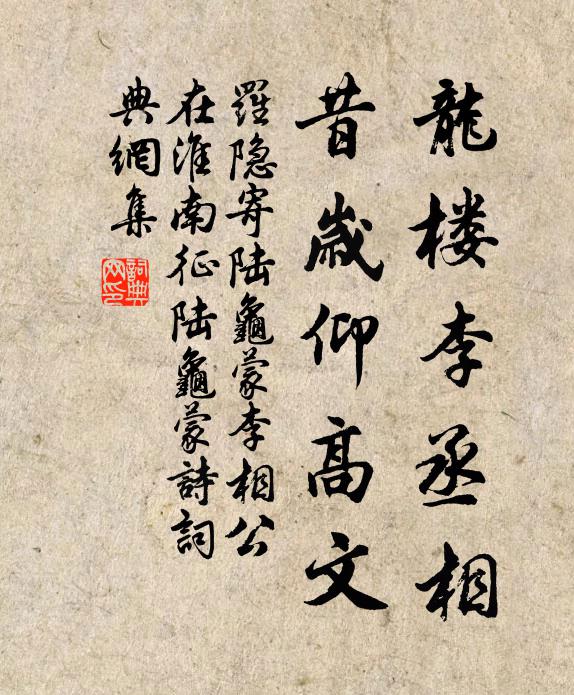 龍楼李丞相
昔歲仰高文
羅隐寄陆龜蒙李相公
在淮南征陆龜蒙詩詞
典網集
詞典
网印